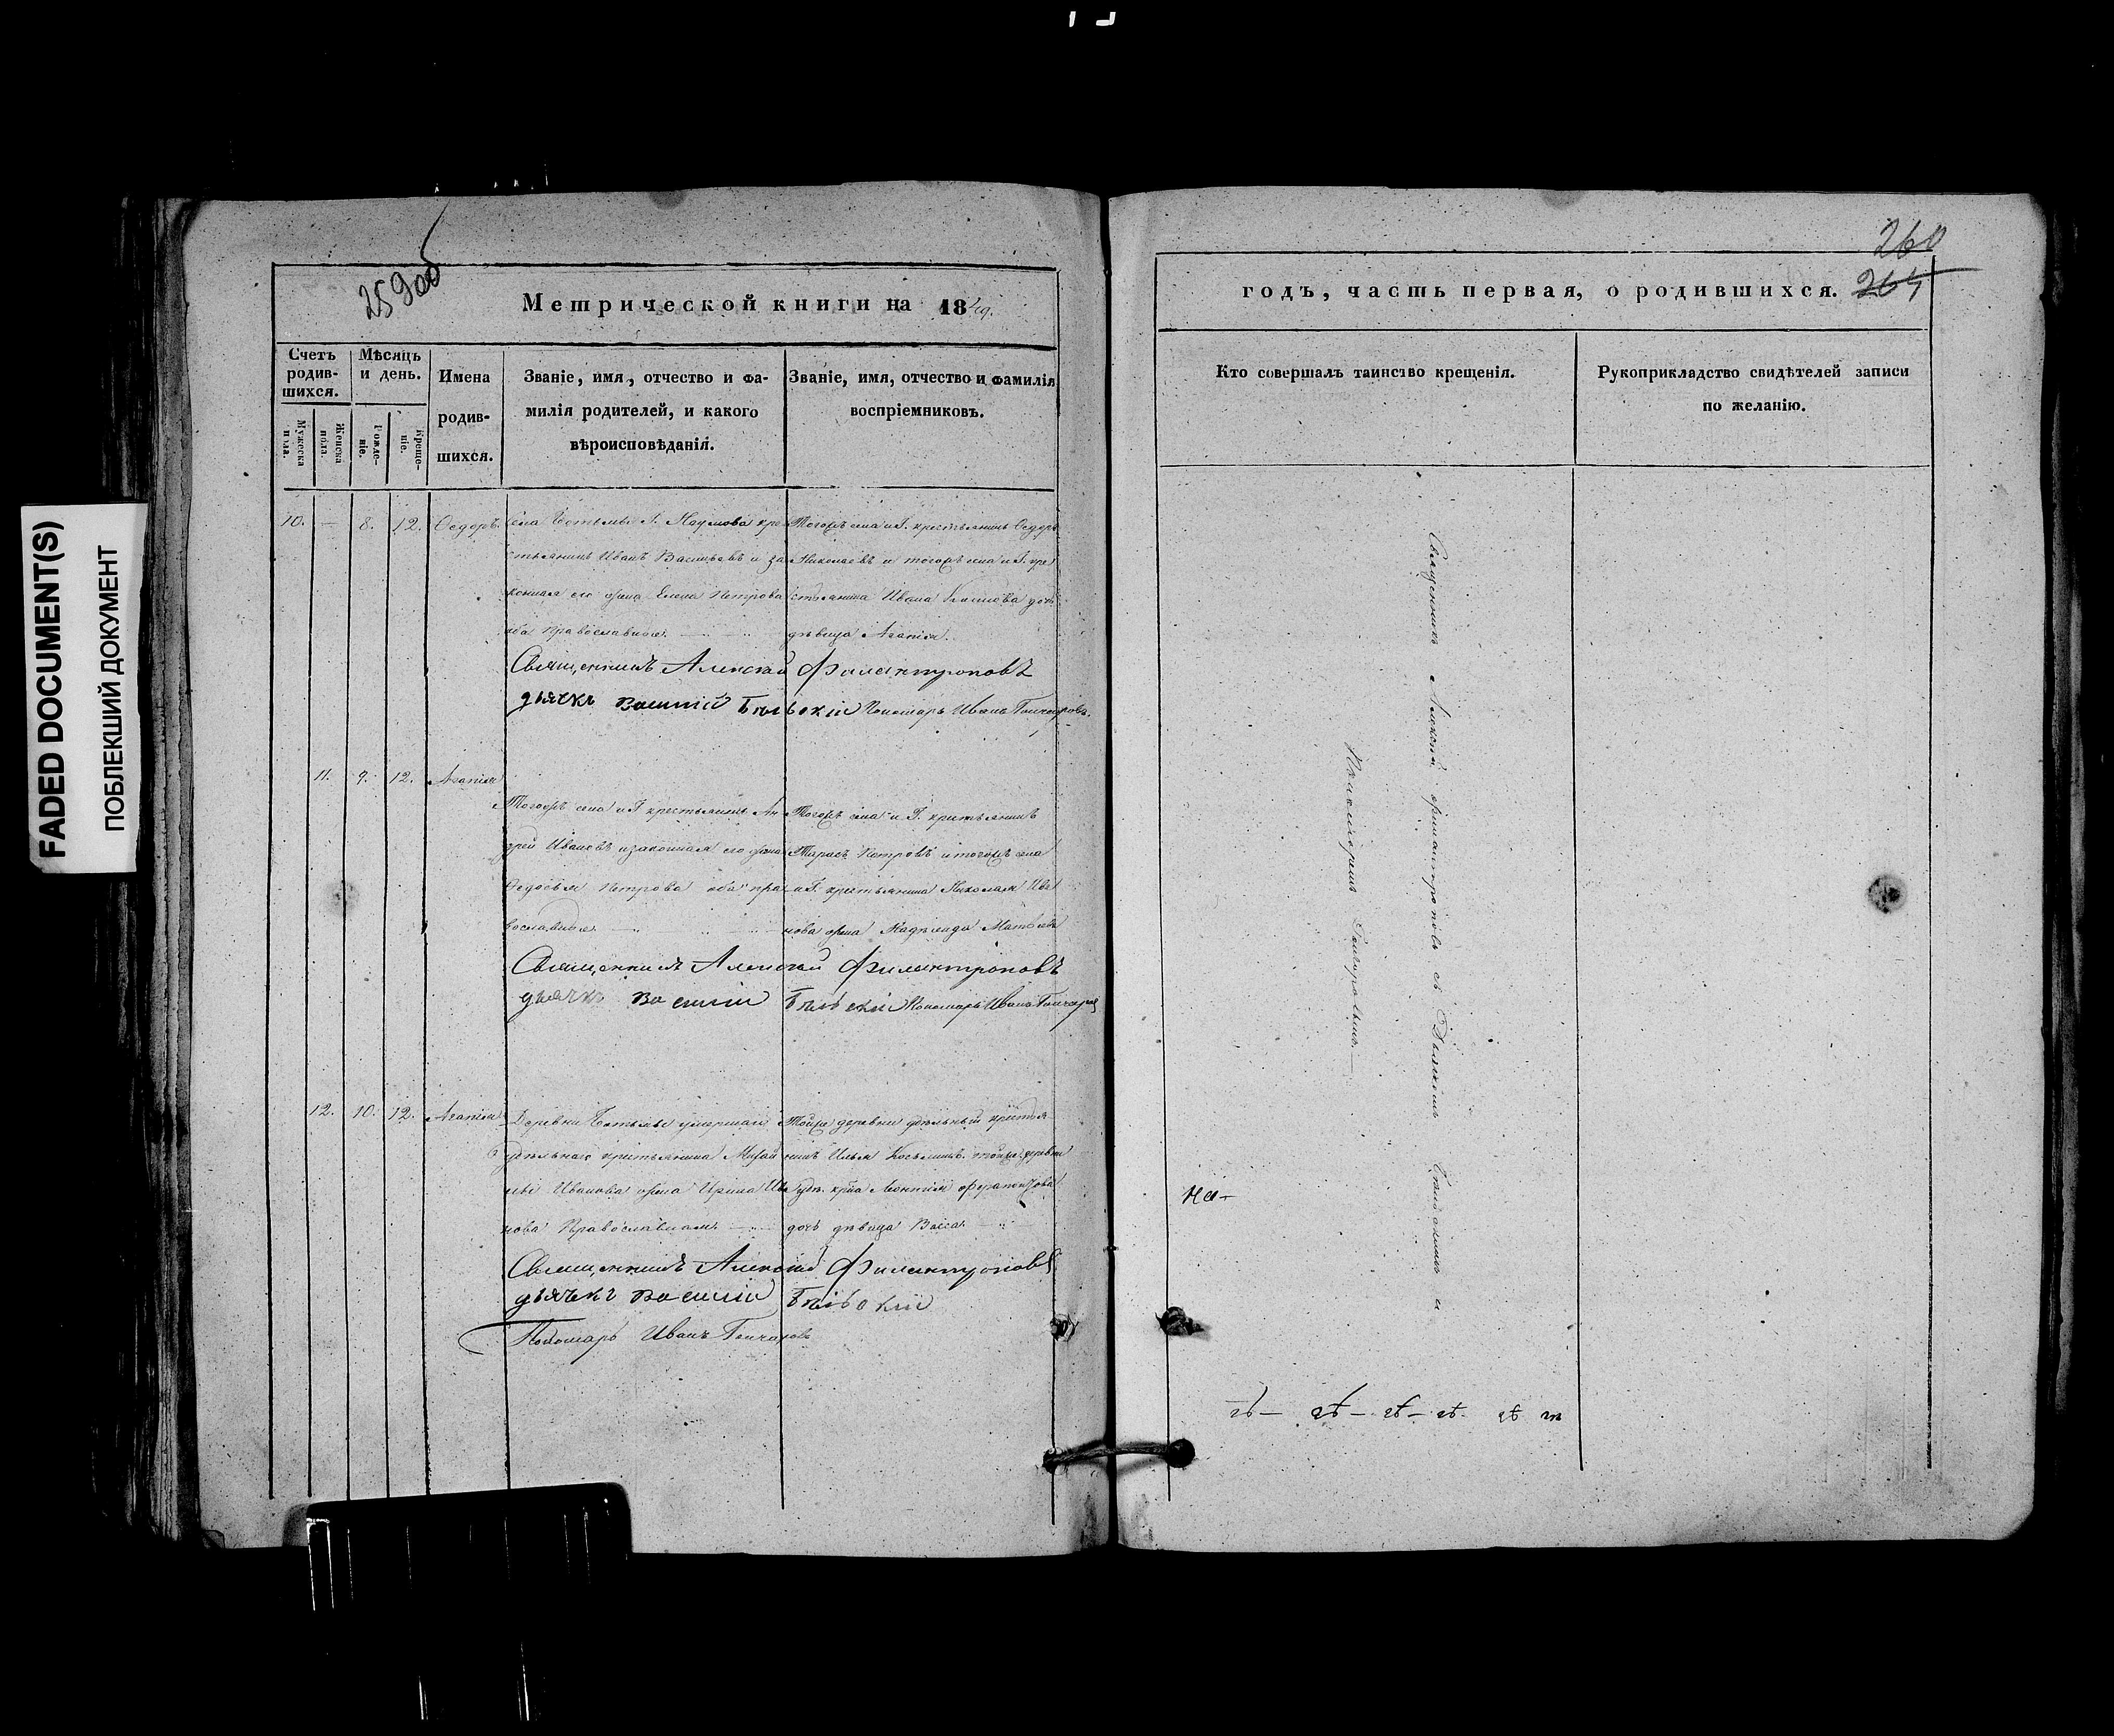 FADED DOCUMENT(S)
ПОБЛЕКШИЙ ДОКУМЕНТ
259об
Метрической книги на 18
Счетъ родив-шихся.
Мѣсяцъ и день.
Мужеска пола.
Женска пола.
Рожде-ніе.
Креще-ніе.
Имена родив-шихся.
Званіе, имя, отчество и фа-
милія родителей, и какого
вѣроисповѣданія.
Званіе, имя, отчество и фамилія
воспріемниковъ.
10. — 8. 12. Ѳедоръ.
села Г. Наумова кре
стьянинъ Иванъ Васильевъ и за
конная его жена Елена Петрова
оба православные.
Тогожъ села и Г. крестьянинъ Ѳедоръ
Николаевъ и тогожъ села и Г. кре
стьянина Ивана дочь
дѣвица Агапія.
Священникъ Алексѣй Филантроповъ
дьячкъ Василій Бѣльскій Пономарь Иванъ Гончаровъ.
11. 9. 12. Агапія
Тогожъ села и Г. крестьянинъ Ан
дрей Ивановъ и законная его жена
Ѳедосья Петрова оба пра
вославные.
Тогожъ села и Г. крестьянинъ
Тарасъ Петровъ и тогожъ села
и Г. крестьянина Николая Ива
нова жена Надежда
Священникъ Алексѣй Филантроповъ
дьячкъ Василій Бѣльскій Пономарь Иванъ Гончаровъ
12. 10. 12. Агапія
Деревни умершаго
удѣльнаго крестьянина Михай
лы Иванова жена Ирина Ива
нова Православная.
Тойже деревни удѣльный крестья
нинъ Илья тойже деревни
удѣ. крна Леонтія Ферапонтова
дочь дѣвица Васса.
Священникъ Алексѣй Филантроповъ
дьячекъ Василій Бѣльскій
Пономарь Иванъ Гончаровъ
260
264
годъ, часть первая, о родившихся.
Кто совершалъ таинство крещенія.
Рукоприкладство свидѣтелей записи
по желанію.
Священникъ Алексѣй Филантроповъ съ Дьячкомъ Бѣльскимъ и
Пономаремъ Гончаровымъ.
на-